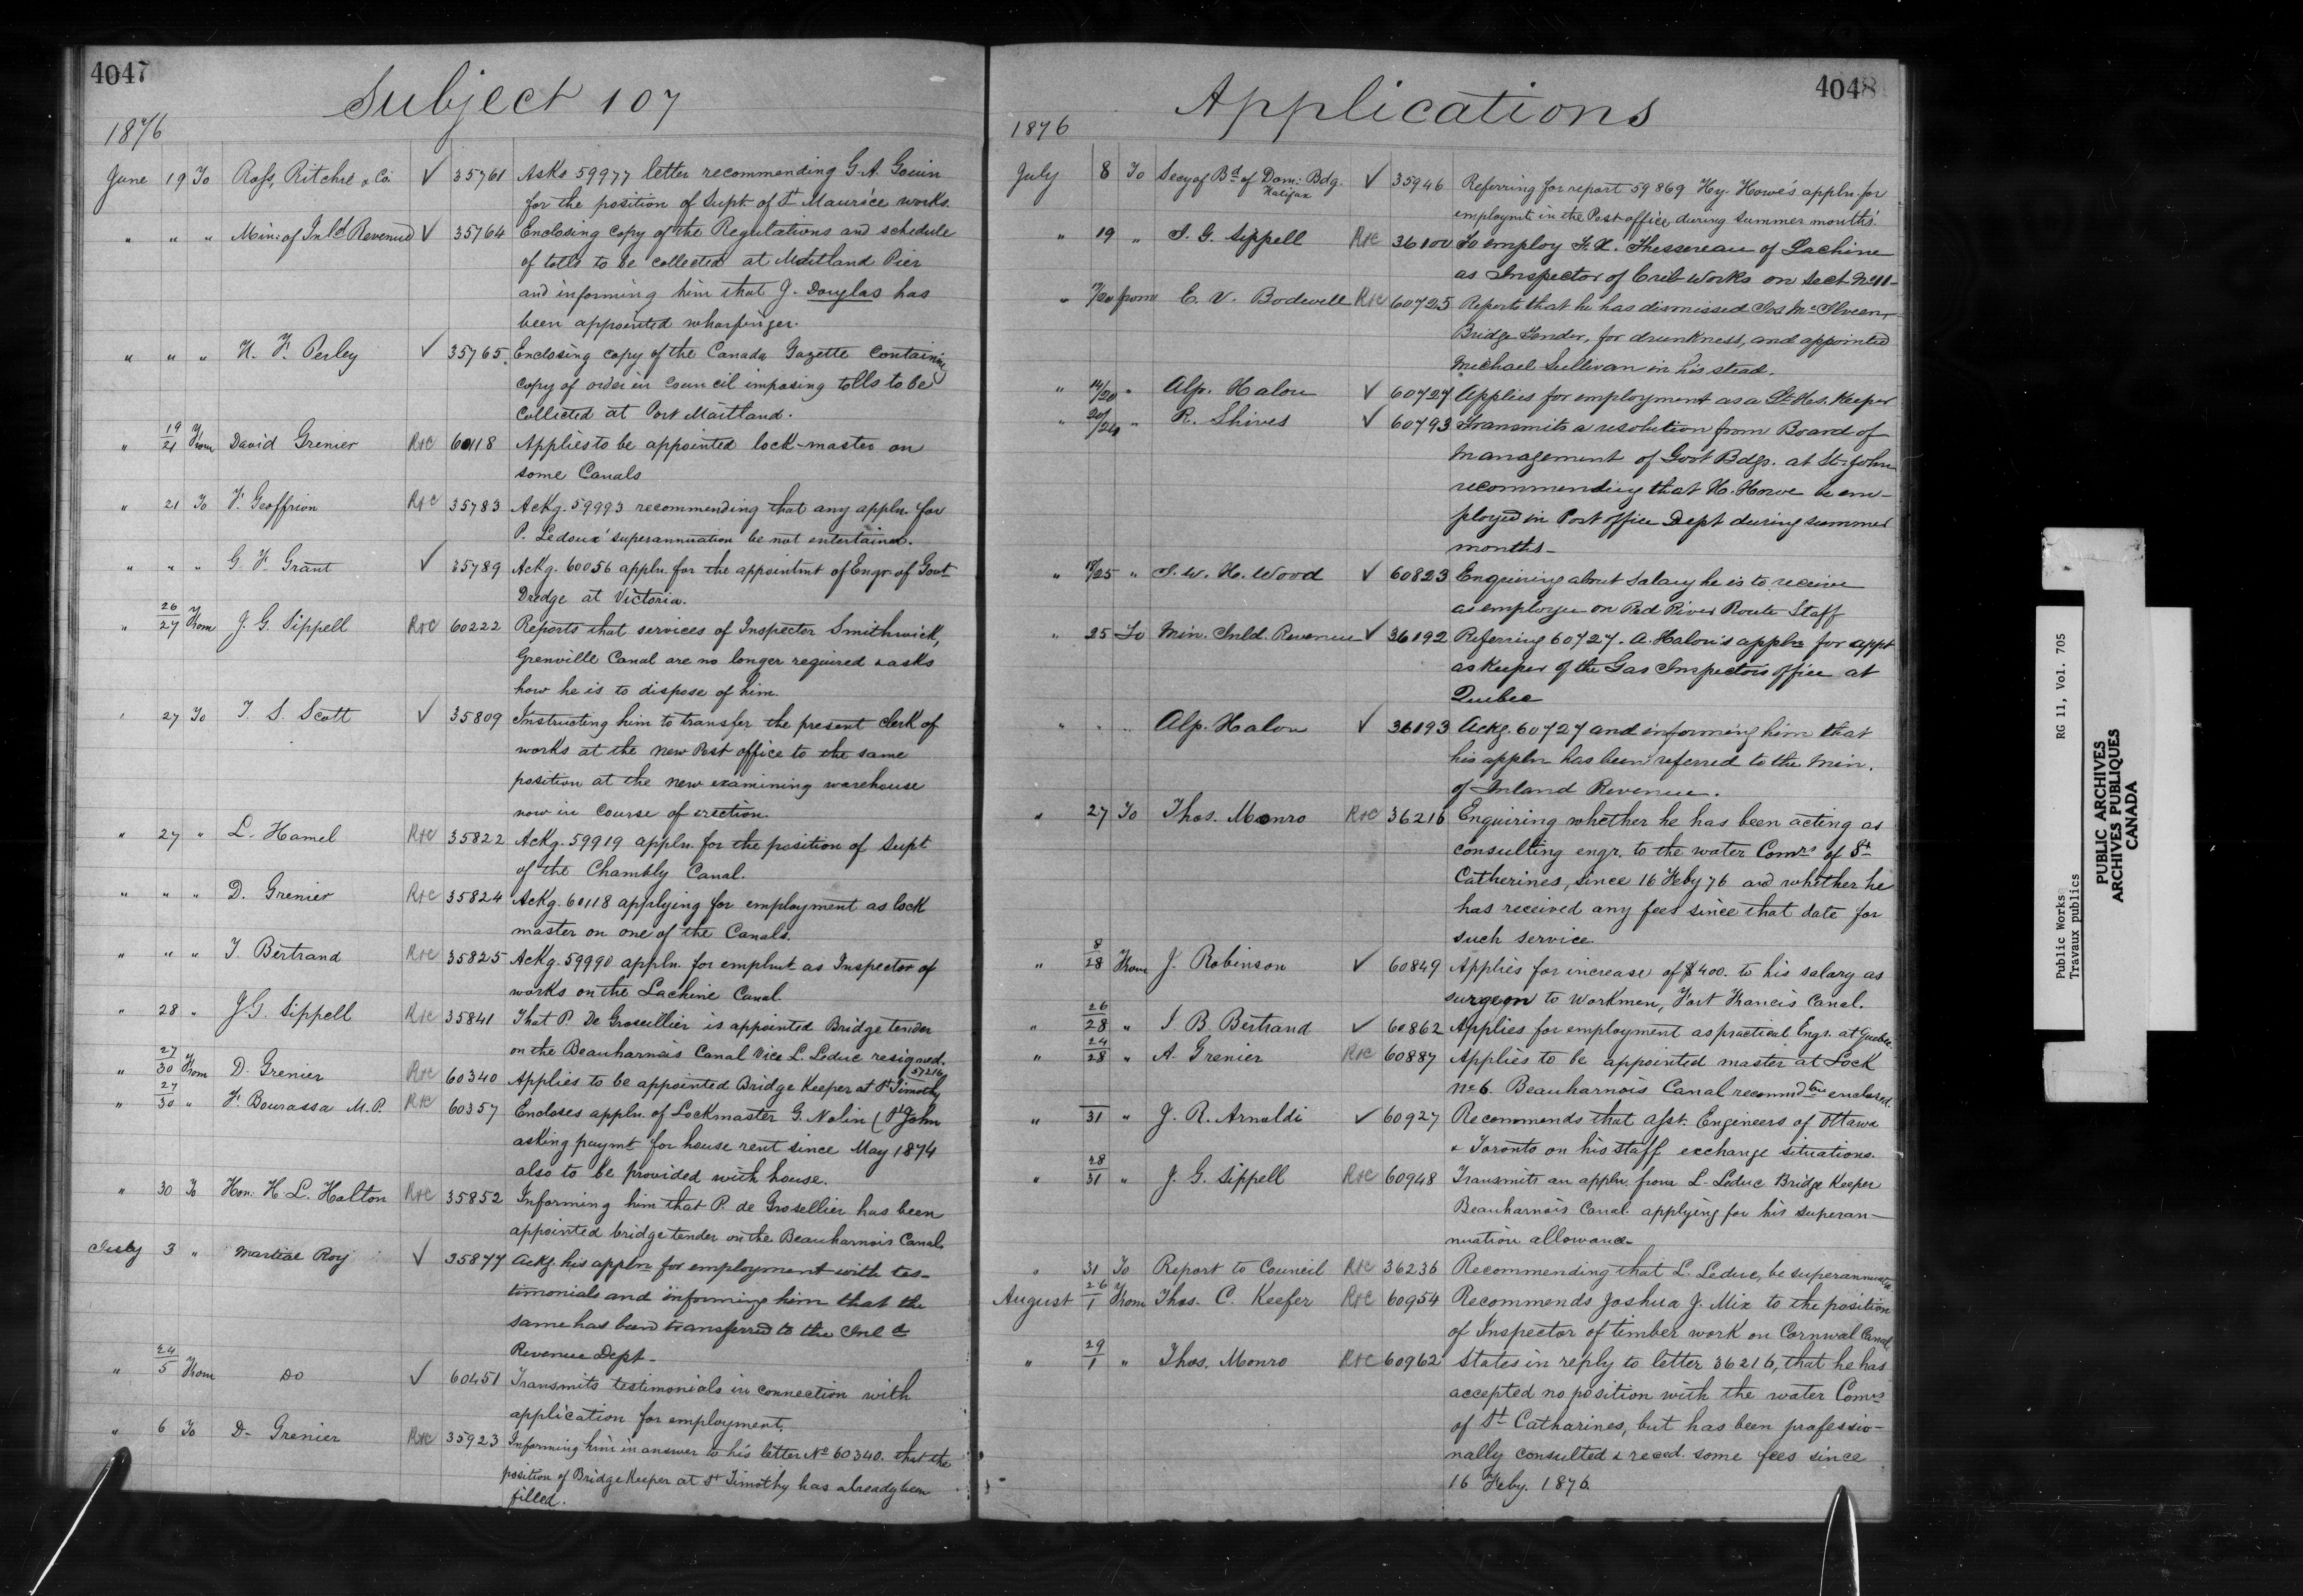 4047
Subject 107
1876
June 19 To Ross, Ritchie & Co. ✓ 35761 Asks 59977 letter recommending G. A. Gouin
for the position of Supt. of St Maurice works.
" " " Min: of Inld Revenue ✓ 35764 Enclosing copy of the Regulations and schedule
of tolls to be collected at Maitland Pier
and informing him that J. Douglas has
been appointed wharfinger.
" " " H. F. Perley ✓ 35765 Enclosing copy of the Canada Gazette containing
copy of order in Council imposing tolls to be
collected at Port Maitland.
" 19/21 From David Grenier R+C 60118 Applies to be appointed lock-master on
some Canals
" 21 To F. Geoffrion R+C 35783 Ackg. 59993 recommending that any appln. for
P. Ledoux' superannuation be not entertained.
" " " G. F. Grant ✓ 35789 Ackg. 60056 appln. for the appointmt of Engr. of Govt
Dredge at Victoria.
" 26/27 From J. G. Sippell R+C 60222 Reports that services of Inspector Smithwick,
Grenville Canal are no longer required & asks
how he is to dispose of him.
" 27 To T. S. Scott ✓ 35809 Instructing him to transfer the present clerk of
works at the new Post office to the same
position at the new examining warehouse
now in course of erection.
" 27 " L. Hamel R+C 35822 Ackg. 59919 appln. for the position of Supt
of the Chambly Canal.
" " " D. Grenier R+C 35824 Ackg. 60118 applying for employment as lock
master on one of the Canals.
" " " T. Bertrand R+C 35825 Ackg. 59990 appln. for emplmt as Inspector of
works on the Lachine Canal.
" 28 " J. G. Sippell R+C 35841 That P. De Groseillier is appointed Bridge tender
on the Beauharnois Canal vice L. Leduc resigned.
57216
" 27/30 From D. Grenier R+C 60340 Applies to be appointed Bridge Keeper at St Timothy
" 27/30 " F. Bourassa M.P. R+C 60357 Encloses appln. of Lockmaster G. Nolin (St John
asking paymt for house rent since May 1874
also to be provided with house.
" 30 To Hon. H. L. Holton R+C 35852 Informing him that P. de Grosellier has been
appointed bridge tender on the Beauharnois Canal
July 3 " Martial Roy ✓ 35877 Ackg. his appln for employment with tes-
timonials and informing him that the
same has been transferred to the Inld
Revenue Dept.
" 24/5 From Do ✓ 60451 Transmits testimonials in connection with
application for employment.
" 6 To D. Grenier R+C 35923 Informing him in answer to his letter No 60340. that the
position of Bridge Keeper at St Timothy has already been
filled.
4048
Applications
1876
July 8 To Secy of Bd of Dom: Bdg. Halifax ✓ 35946 Referring for report 59869 Hy. Howe's appln. for
employmt in the Post office, during summer months.
" 19 " J. G. Sippell R+C 36100 To employ F. X. Thessereau of Lachine
as Inspector of Crib works on Sect. No 11
" /20 from E. V. Bodwell R+C 60725 Reports that he has dismissed Jos McIlveen,
Bridge Tender, for drunkness, and appointed
Michael Sullivan in his stead.
" 14/20 " Alp. Halou ✓ 60727 Applies for employment as a Hse. Keeper
" 20/24 " R. Shives ✓ 60793 Transmits a resolution from Board of
management of Govt Bdgs. at St. John
recommending that H. Howe be em-
ployed in Post office Dept during summer
months
" 18/25 " J. W. H. Wood ✓ 60823 Enquiring about salary he is to receive
as employee on Red River Route Staff
" 25 To Min. Inld. Revenue ✓ 36192 Referring 60727. A. Halou's appln for appt
as keeper of the Gas Inspectors office at
Quebec
" " " Alp. Halou ✓ 36193 Ackg. 60727 and informing him that
his appln has been referred to the Min.
of Inland Revenue.
" 27 To Thos. Monro R+C 36216 Enquiring whether he has been acting as
consulting engr. to the water Comrs of St
Catherines, since 16 Feby 76 and whether he
has received any fees since that date for
such service.
" 8/28 From J. Robinson ✓ 60849 Applies for increase of $400. to his salary as
surgeon to workmen, Fort Francis Canal.
" 26/28 " J. B. Bertrand ✓ 60862 Applies for employment as practical Engr. at Quebec
" 24/28 " A. Grenier R+C 60887 Applies to be appointed master at Lock
No 6. Beauharnois Canal recommdtion enclosed.
" /31 " J. R. Arnoldi ✓ 60927 Recommends that asst. Engineers of Ottawa
& Toronto on his staff exchange situations.
" 28/31 " J. G. Sippell R+C 60948 Transmits an appln. from L. Leduc Bridge Keeper
Beauharnois Canal. applying for his superan-
nuation allowance.
" 31 To Report to Council R+C 36236 Recommending that L. Leduc, be superannuated
August 26/1 From Thos. C. Keefer R+C 60954 Recommends Joshua J. Mix to the position
of Inspector of timber work on Cornwal Canal
" 29/1 " Thos. Monro R+C 60962 States in reply to letter 36216, that he has
accepted no position with the water Comrs
of St Catharines, but has been professio-
nally consulted & recd. some fees since
16 Feby. 1876.
Public Works RG 11, Vol. 705
Travaux publics
PUBLIC ARCHIVES
ARCHIVES PUBLIQUES
CANADA